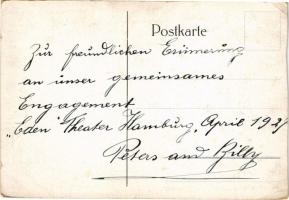 Postkarte
Zur freundlichen Erinnerung
an unser gemeinsames
Engagement
"Eden Theater Hamburg, April 192
Peters and Billy